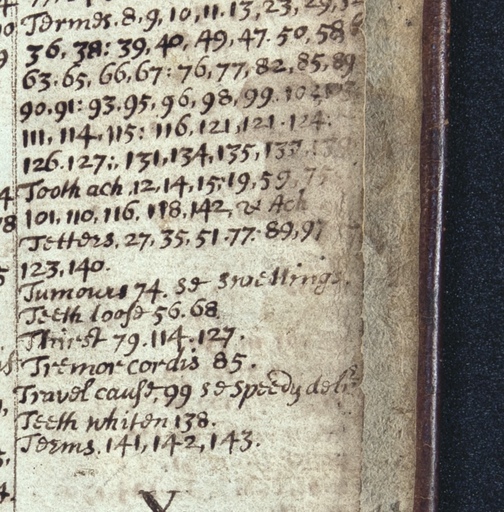 Termes. 8, 9, 10, 11. 13, 23, 29, 3
36, 38: 39, 40, 49, 47. 50, 58
63. 65, 66, 67: 76, 77, 82, 85, 89
90. 91: 93. 95, 96, 98, 99. 102
111, 114, 115: 116, 121, 121. 124:
126. 127:, 131, 134, 135, 137,
Tooth ach, 12, 14, 15, 19, 59, 75
101, 110, 116, 118, 142, & Ach
Tetters, 27, 35, 51. 77. 89, 97
123, 140.
Tumours 74. se Swellings.
Teeth loose 56. 68
Thirst 79. 114. 127.
Tremor cordis 85.
Travel cause, 99 se speedy deli
Teeth whiten 138.
Terms, 141, 142, 143.
V